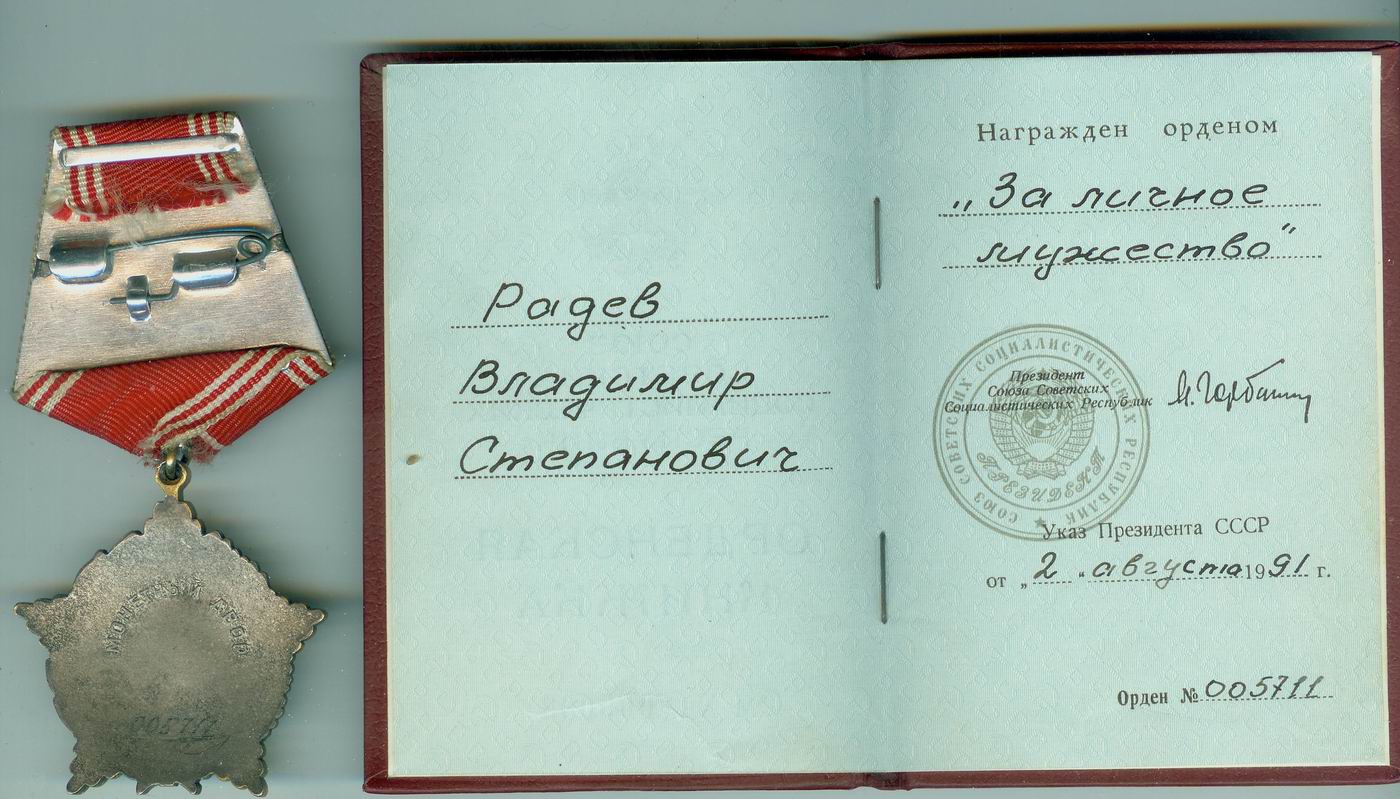 МОНЕТНЫЙ ДВОР
005711
Радев
Владимир
Степанович
Награжден орденом
„За личное
мужество"
СОЮЗ СОВЕТСКИХ СОЦИАЛИСТИЧЕСКИХ РЕСПУБЛИК
Президент
Союза Советских
Социалистических Республик
ПРЕЗИДЕНТ
Указ Президента СССР
от „2" августа 1991 г.
Орден № 005711